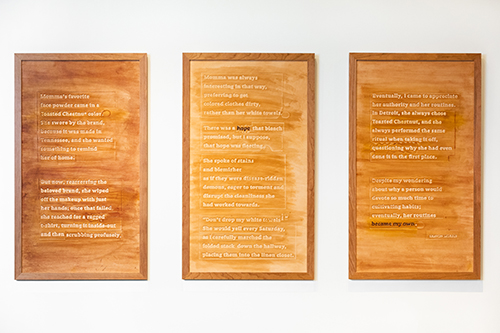 Momma's favorite
face powder came in a
Toasted Chestnut color.
She swore by the brand,
because it was made in
Tennessee, and she wanted
something to remind
her of home.
But now, reapplying the
beloved brand, she wiped
off the makeup with just
her hands; once that failed
she reached for a ragged
t-shirt, turning it inside-out
and then scrubbing profusely
Momma was always
interesting in that way,
preferring to get
colored clothes dirty,
rather than her white towels.
There was a hope that bleach
promised, but I suppose,
that hope was fleeting.
She spoke of stains
and blemishes
as if they were disease-ridden
demons, eager to torment and
disrupt the cleanliness she
had worked towards.
"Don't drop my white towels!"
She would yell every Saturday,
as I carefully marched the
folded stack down the hallway,
placing them into the linen closet.
Eventually, I came to appreciate
her authority and her routines.
In Detroit, she always chose
Toasted Chestnut, and she
always performed the same
ritual when taking it off,
questioning why she had even
done it in the first place.
Despite my wondering
about why a person would
devote so much time to
cultivating habits;
eventually, her routines
became my own